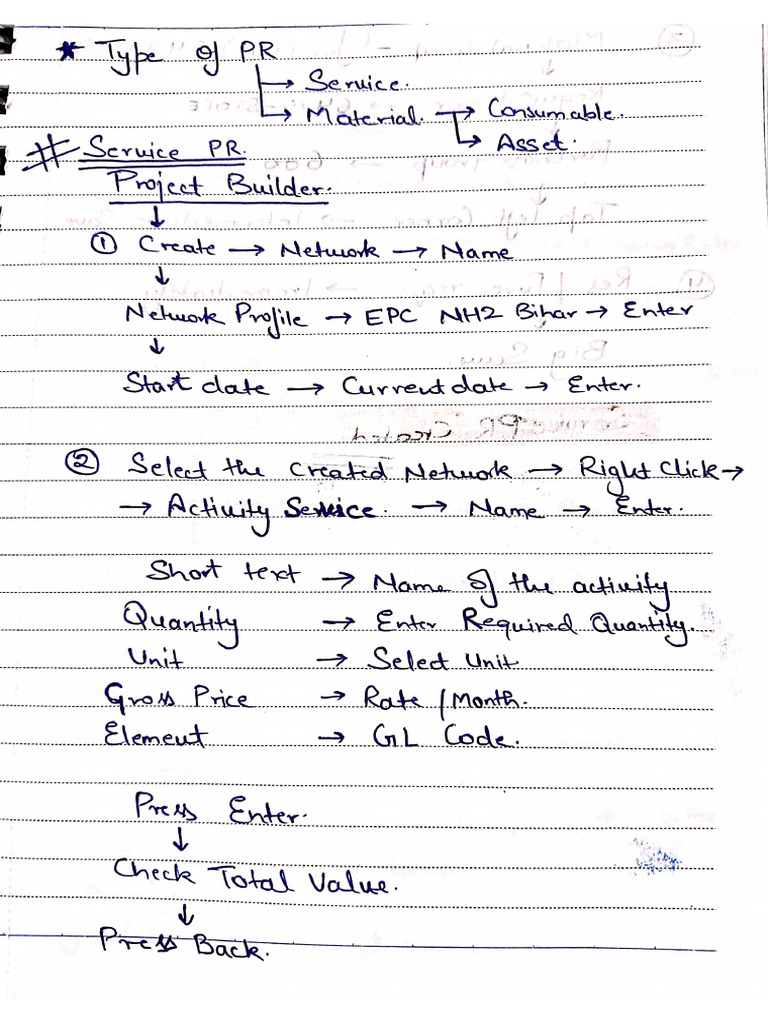 * Type of PR
→ Service.
→ Material. → Consumable.
→ Asset.
# Service PR.
Project Builder.
↓
① Create → Network → Name
↓
Network Profile → EPC NH2 Bihar → Enter
↓
Start date → Current date → Enter.
② Select the Created Network → Right Click →
→ Activity Service. → Name → Enter.
Short text → Name of the activity
Quantity → Enter Required Quantity.
Unit → Select Unit
Gross Price → Rate / Month.
Element → GL Code.
Press Enter.
↓
Check Total Value.
↓
Press Back.